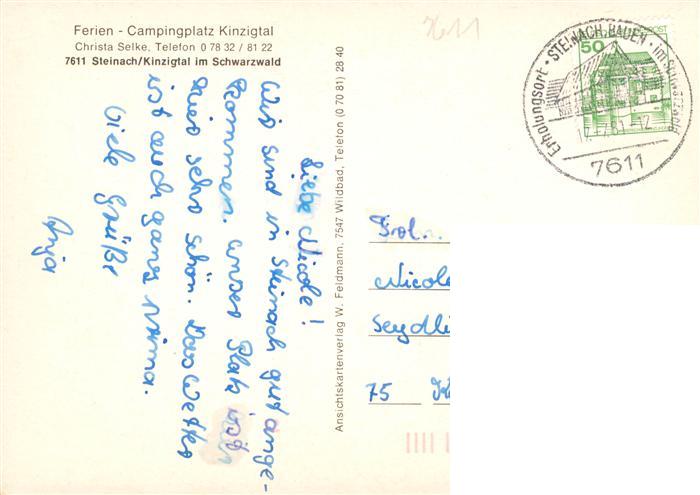 Ferien - Campingplatz Kinzigtal
Christa Selke, Telefon 0 78 32 / 81 22
7611 Steinach/Kinzigtal im Schwarzwald
Liebe Nicole!
Wir sind in Steinach gut ange-
kommen. unser Platz ist
hier sehr schön. Das Wetter
ist auch ganz prima.
Viele Grüße
Anja
Ansichtskartenverlag W. Feldmann, 7547 Wildbad, Telefon (0 70 81) 28 40
7611
50
Erholungsort · STEINACH, BADEN · im Schwarzwald
7.81-12
7611
Frl.
Nicole
Seydli
75 K